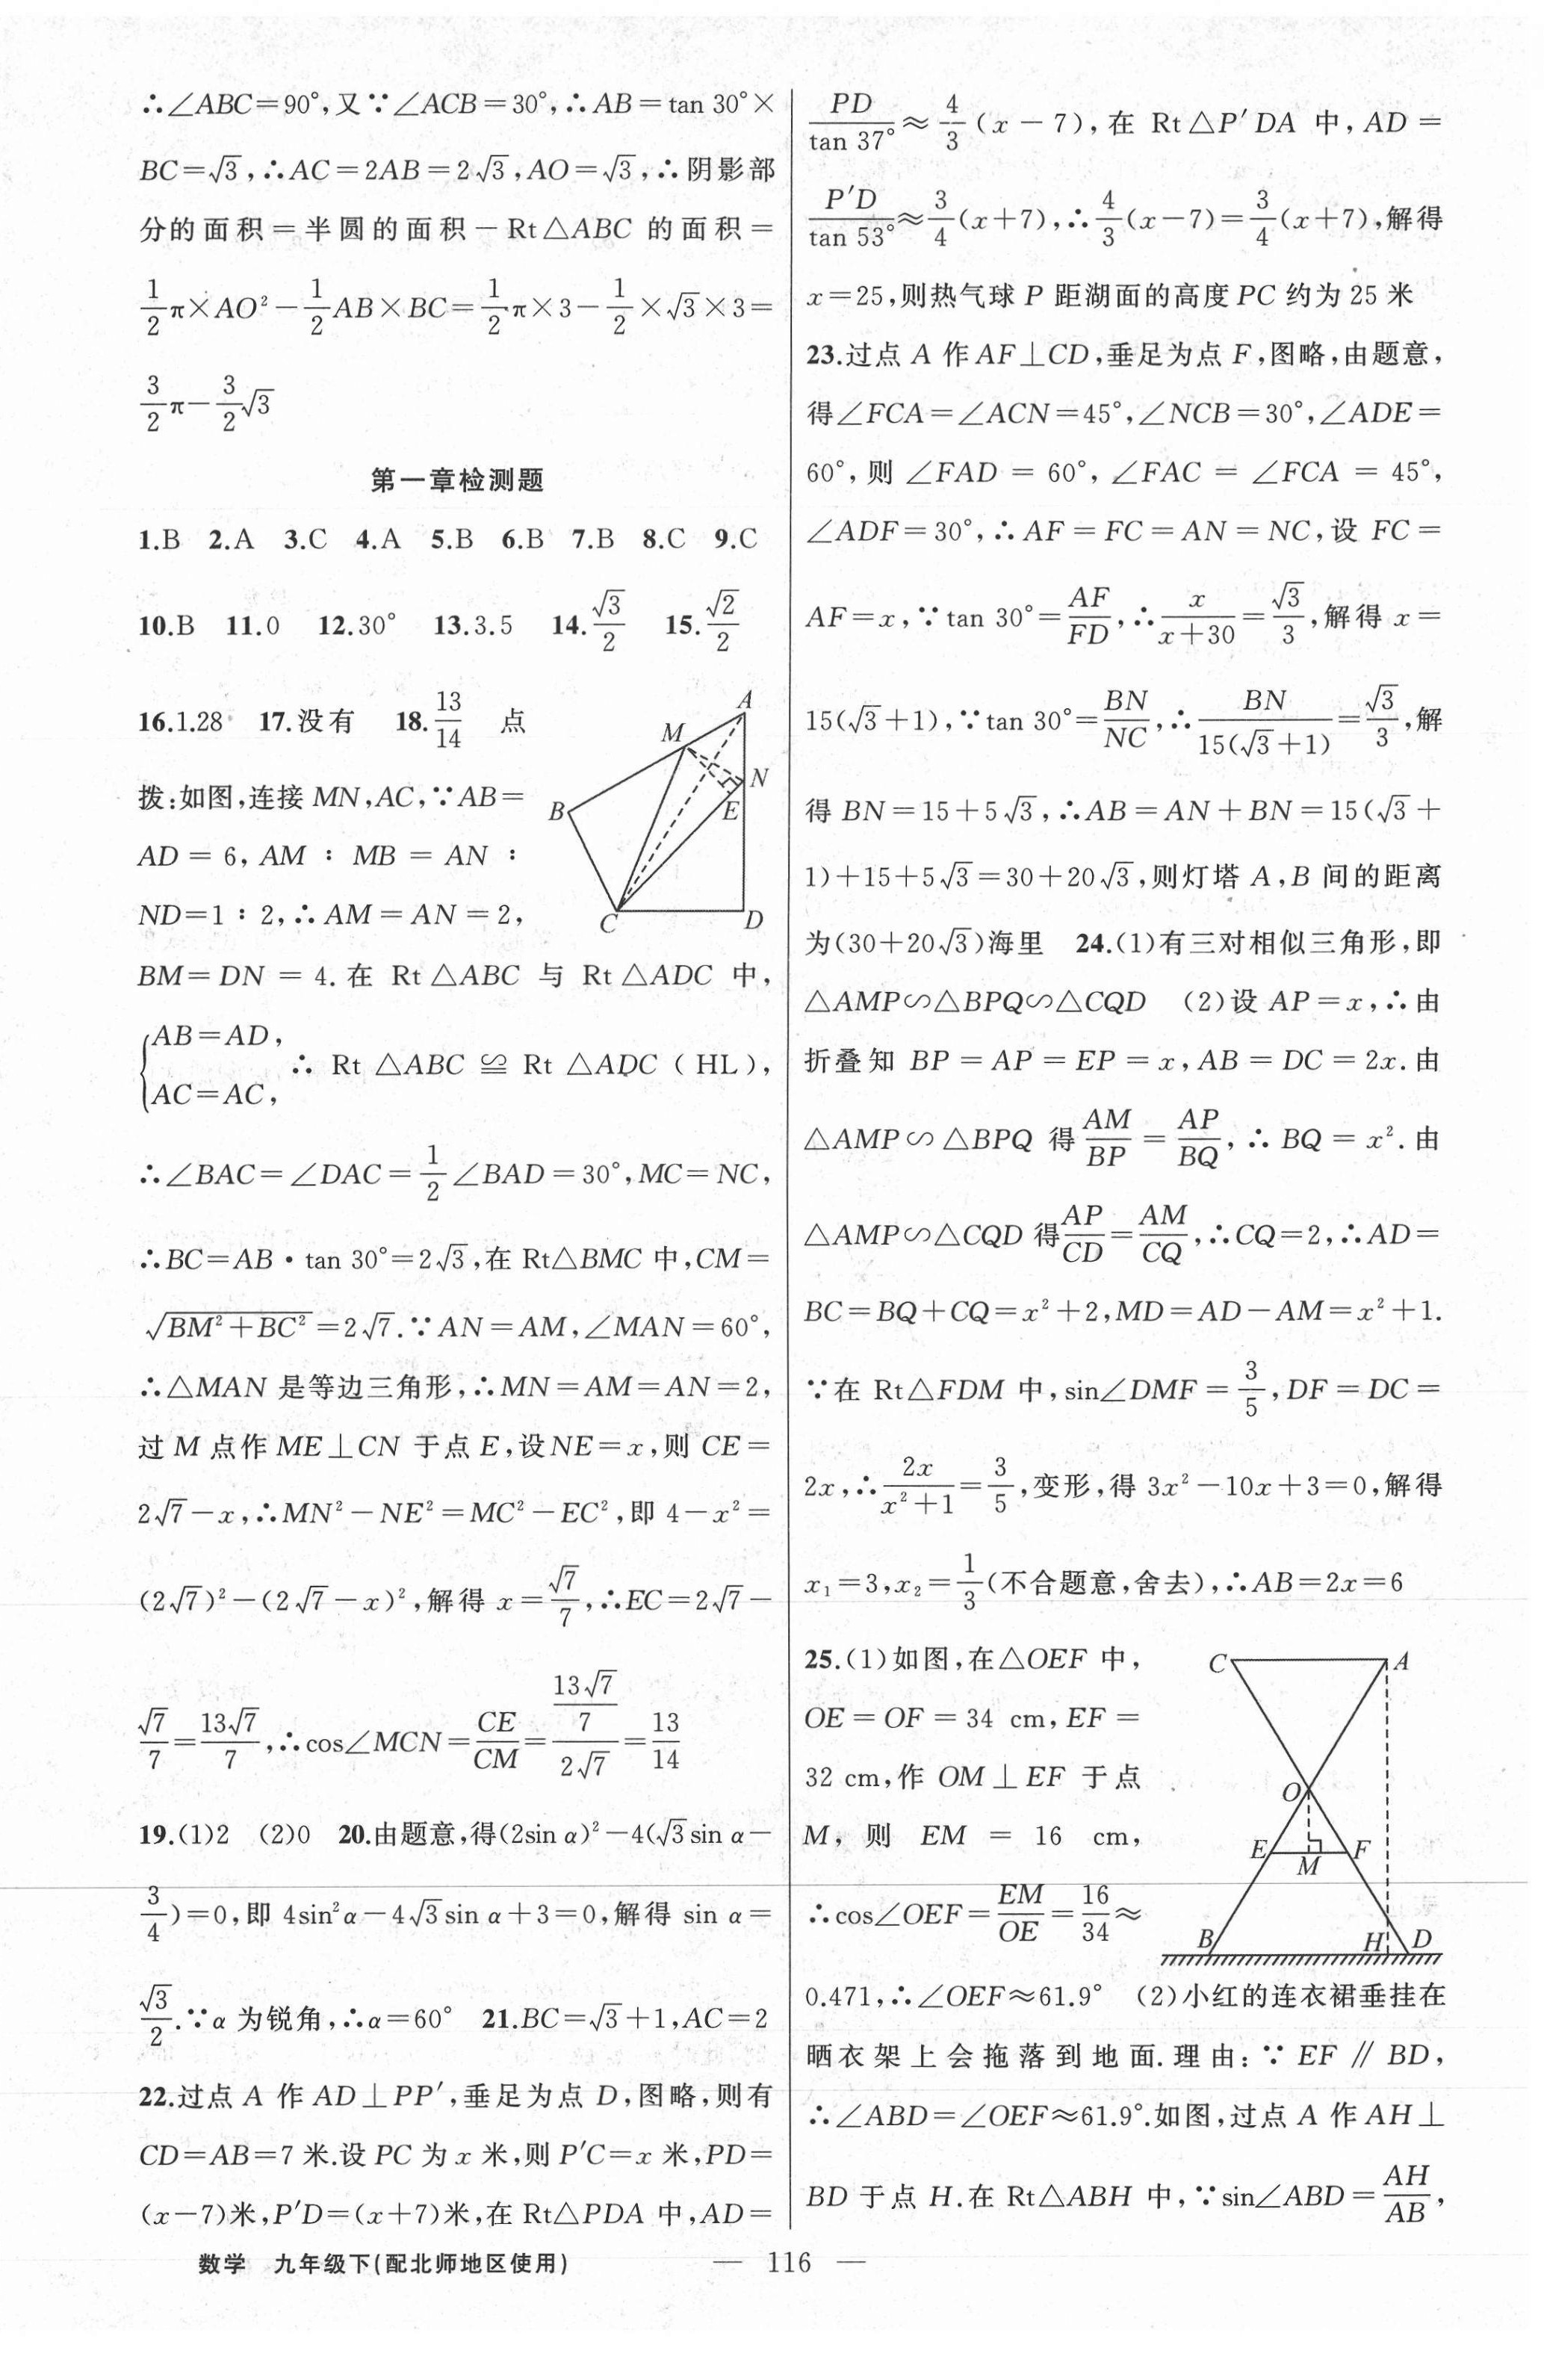 ∴∠ABC=90°,又∵∠ACB=30°,∴AB=tan 30°×
BC=√3,∴AC=2AB=2√3,AO=√3,∴阴影部
分的面积=半圆的面积-Rt△ABC 的面积=
1/2π×AO²-1/2AB×BC=1/2π×3-1/2×√3×3=
3/2π-3/2√3
第一章检测题
1.B 2.A 3.C 4.A 5.B 6.B 7.B 8.C 9.C
10.B 11.0 12.30° 13.3.5 14.√3/2 15.√2/2
16.1.28 17.没有 18.13/14 点
拨:如图,连接 MN,AC,∵AB=
AD=6,AM:MB=AN:
ND=1:2,∴AM=AN=2,
A
M
N
B
E
C
D
BM=DN=4.在 Rt△ABC 与 Rt△ADC 中,
{AB=AD,
AC=AC,
∴ Rt△ABC≌Rt△ADC(HL),
∴∠BAC=∠DAC=1/2∠BAD=30°,MC=NC,
∴BC=AB·tan 30°=2√3,在 Rt△BMC 中,CM=
√(BM²+BC²)=2√7.∵AN=AM,∠MAN=60°,
∴△MAN 是等边三角形,∴MN=AM=AN=2,
过 M 点作 ME⊥CN 于点 E,设NE=x,则 CE=
2√7-x,∴MN²-NE²=MC²-EC²,即 4-x²=
(2√7)²-(2√7-x)²,解得 x=√7/7,∴EC=2√7-
√7/7=13√7/7,∴cos∠MCN=CE/CM=(13√7/7)/(2√7)=13/14
19.(1)2 (2)0 20.由题意,得(2sin α)²-4(√3sin α-
3/4)=0,即 4sin²α-4√3sin α+3=0,解得 sin α=
√3/2.∵α 为锐角,∴α=60° 21.BC=√3+1,AC=2
22.过点 A 作 AD⊥PP′,垂足为点 D,图略,则有
CD=AB=7 米.设 PC 为 x 米,则 P′C=x 米,PD=
(x-7)米,P′D=(x+7)米,在 Rt△PDA 中,AD=
PD/tan 37°≈4/3(x-7),在 Rt△P′DA 中,AD=
P′D/tan 53°≈3/4(x+7),∴4/3(x-7)=3/4(x+7),解得
x=25,则热气球 P 距湖面的高度 PC 约为 25 米
23.过点 A 作 AF⊥CD,垂足为点 F,图略,由题意,
得∠FCA=∠ACN=45°,∠NCB=30°,∠ADE=
60°,则∠FAD=60°,∠FAC=∠FCA=45°,
∠ADF=30°,∴AF=FC=AN=NC,设 FC=
AF=x,∵tan 30°=AF/FD,∴x/(x+30)=√3/3,解得 x=
15(√3+1),∵tan 30°=BN/NC,∴BN/(15(√3+1))=√3/3,解
得 BN=15+5√3,∴AB=AN+BN=15(√3+
1)+15+5√3=30+20√3,则灯塔 A,B 间的距离
为(30+20√3)海里 24.(1)有三对相似三角形,即
△AMP∽△BPQ∽△CQD (2)设 AP=x,∴由
折叠知 BP=AP=EP=x,AB=DC=2x.由
△AMP∽△BPQ 得AM/BP=AP/BQ,∴BQ=x².由
△AMP∽△CQD 得AP/CD=AM/CQ,∴CQ=2,∴AD=
BC=BQ+CQ=x²+2,MD=AD-AM=x²+1.
∵在 Rt△FDM 中,sin∠DMF=3/5,DF=DC=
2x,∴2x/(x²+1)=3/5,变形,得 3x²-10x+3=0,解得
x₁=3,x₂=1/3(不合题意,舍去),∴AB=2x=6
25.(1)如图,在△OEF 中,
OE=OF=34 cm,EF=
32 cm,作 OM⊥EF 于点
M,则 EM=16 cm,
∴cos∠OEF=EM/OE=16/34≈
C
A
O
E
M
F
B
H
D
0.471,∴∠OEF≈61.9° (2)小红的连衣裙垂挂在
晒衣架上会拖落到地面.理由:∵EF∥BD,
∴∠ABD=∠OEF≈61.9°.如图,过点 A 作 AH⊥
BD 于点 H.在 Rt△ABH 中,∵sin∠ABD=AH/AB,
数学 九年级下(配北师地区使用)
— 116 —